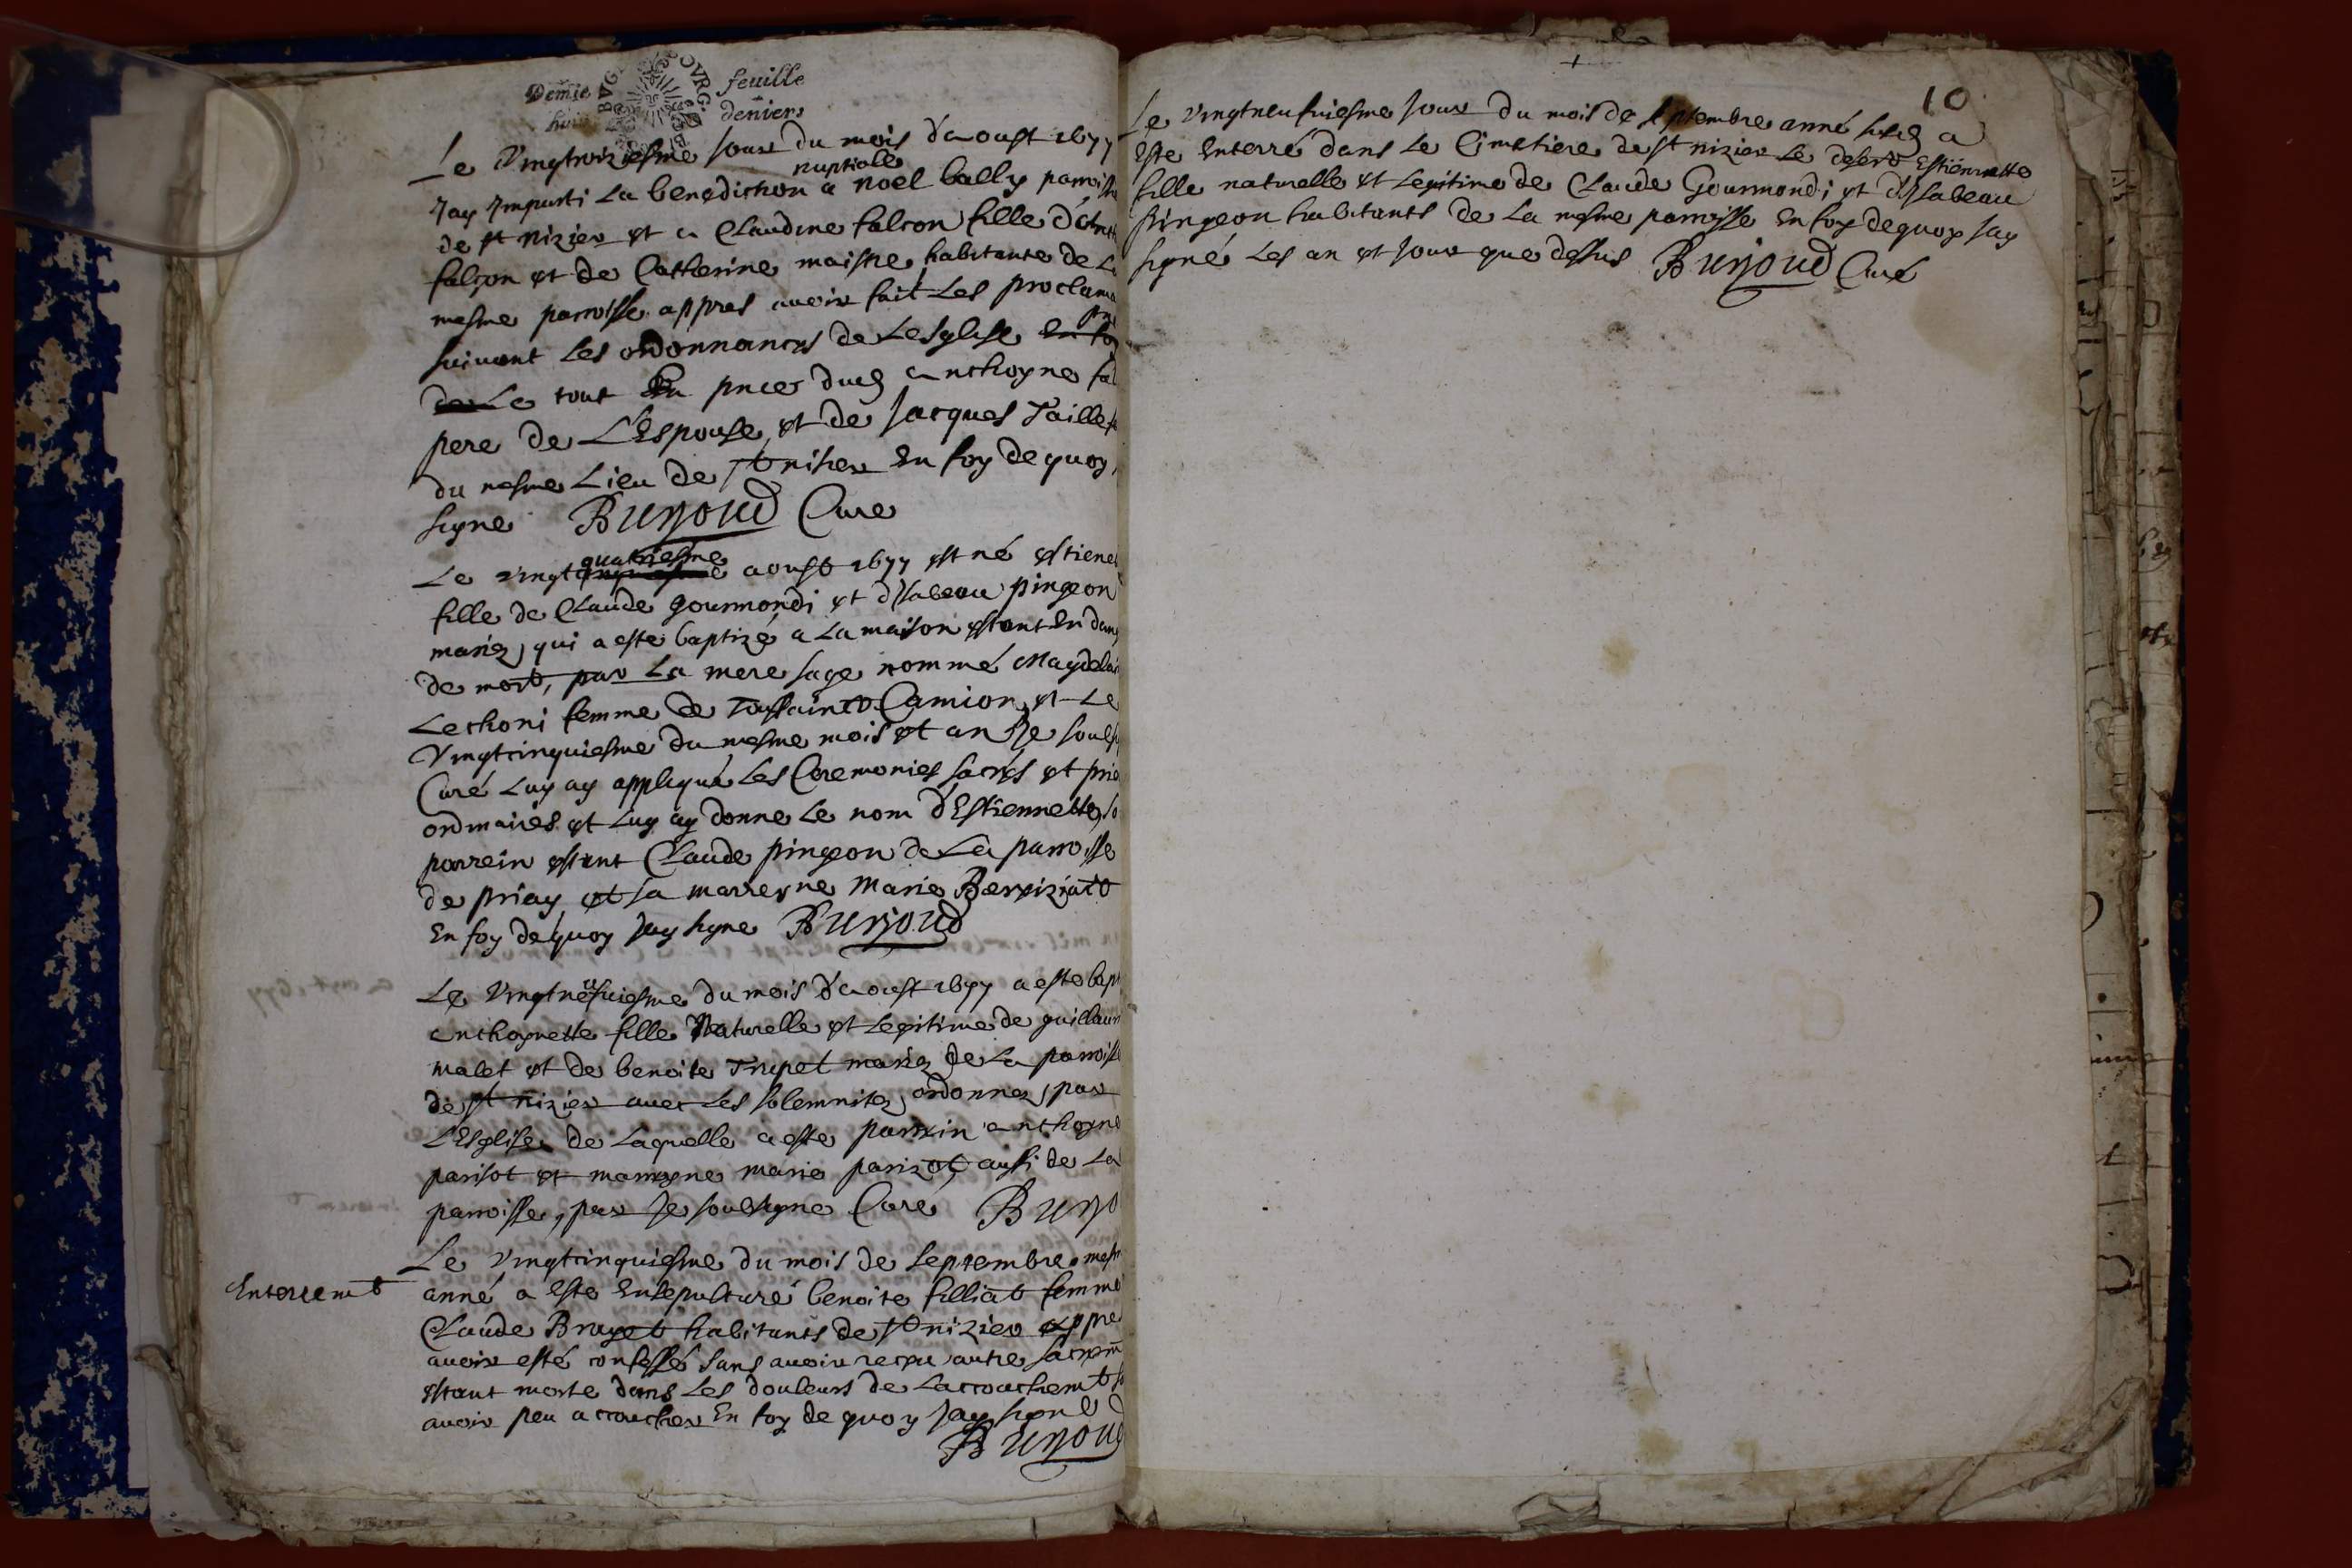 Demie feuille
huit deniers
BOVRG
Le Vingtroiziesme Jour du mois d'aoust 1677
nuptialle
Jay Imparti La benediction a noel bally paroiss
de st nizier et a Claudine falcon fille d'Anth
falcon et de Catherine maistre habitante de La
mesme parroisse appres avoir fait Les proclama
suivant Les ordonnances de Lesglise en foy
de Le tout En pnce dud anthoyne fal
pere de L'Espouse, et de Jacques Taillef
du mesme Lieu de st nisier En foy de quoy
signe Bunoud Cure
quatriesme
Le vingt cinquiesme aoust 1677 est né estiene
fille de Claude gourmondi et d'Isabeau pingeon
mariez, qui a este baptizé a La maison estant En dang
de mort, par La mere sage nommé Magdelai
Lethoni femme de Toussainct Camion, et Le
Vingtcinquiesme du mesme mois et an Je soubs
Curé Luy ay appliqué Les Ceremonies sacrés et prie
ordinaires et Luy ay donne Le nom d'Estiennette, so
parrein estant Claude pingeon de La parroisse
de priay et sa marreyne Marie Berriziat
En foy de quoy Jay signe Bunoud
Le Vingtneufuiesme du mois d'aoust 1677 a este bapt
anthoynette fille Naturelle et Legitime de guillaum
malet et de benoite Tripet mariez de La paroiss
de st nizier avec Les solemnitez ordonnez par
L'Esglise de Laquelle a este parrin anthoyne
parisot et marreyne marie parizot, aussi de La
parroisse, par Je soubsigne Curé Buno
Enterremt
Le Vingtcinquiesme du mois de septembre mesm
anné a este Ensepulturé benoite filliat femme
Claude Brayet habitants de st nizier appre
avoir esté confessé sans avoir receu autre sacrem
estant morte dans Les douleurs de Laccouchemt sa
avoir peu accoucher En foy de quoy Jay signé
Bunoud
10
Le Vingtneufuiesme Jour du mois de septembre anné susd a
Este Enterré dans Le Cimetiere de st nizier Le desert Estiennette
fille naturelle et Legitime de Claude Gourmondi et d'Isabeau
pingeon habitants de La mesme parroisse En foy de quoy Jay
signé Les an et Jour que dessus Bunoud Curé